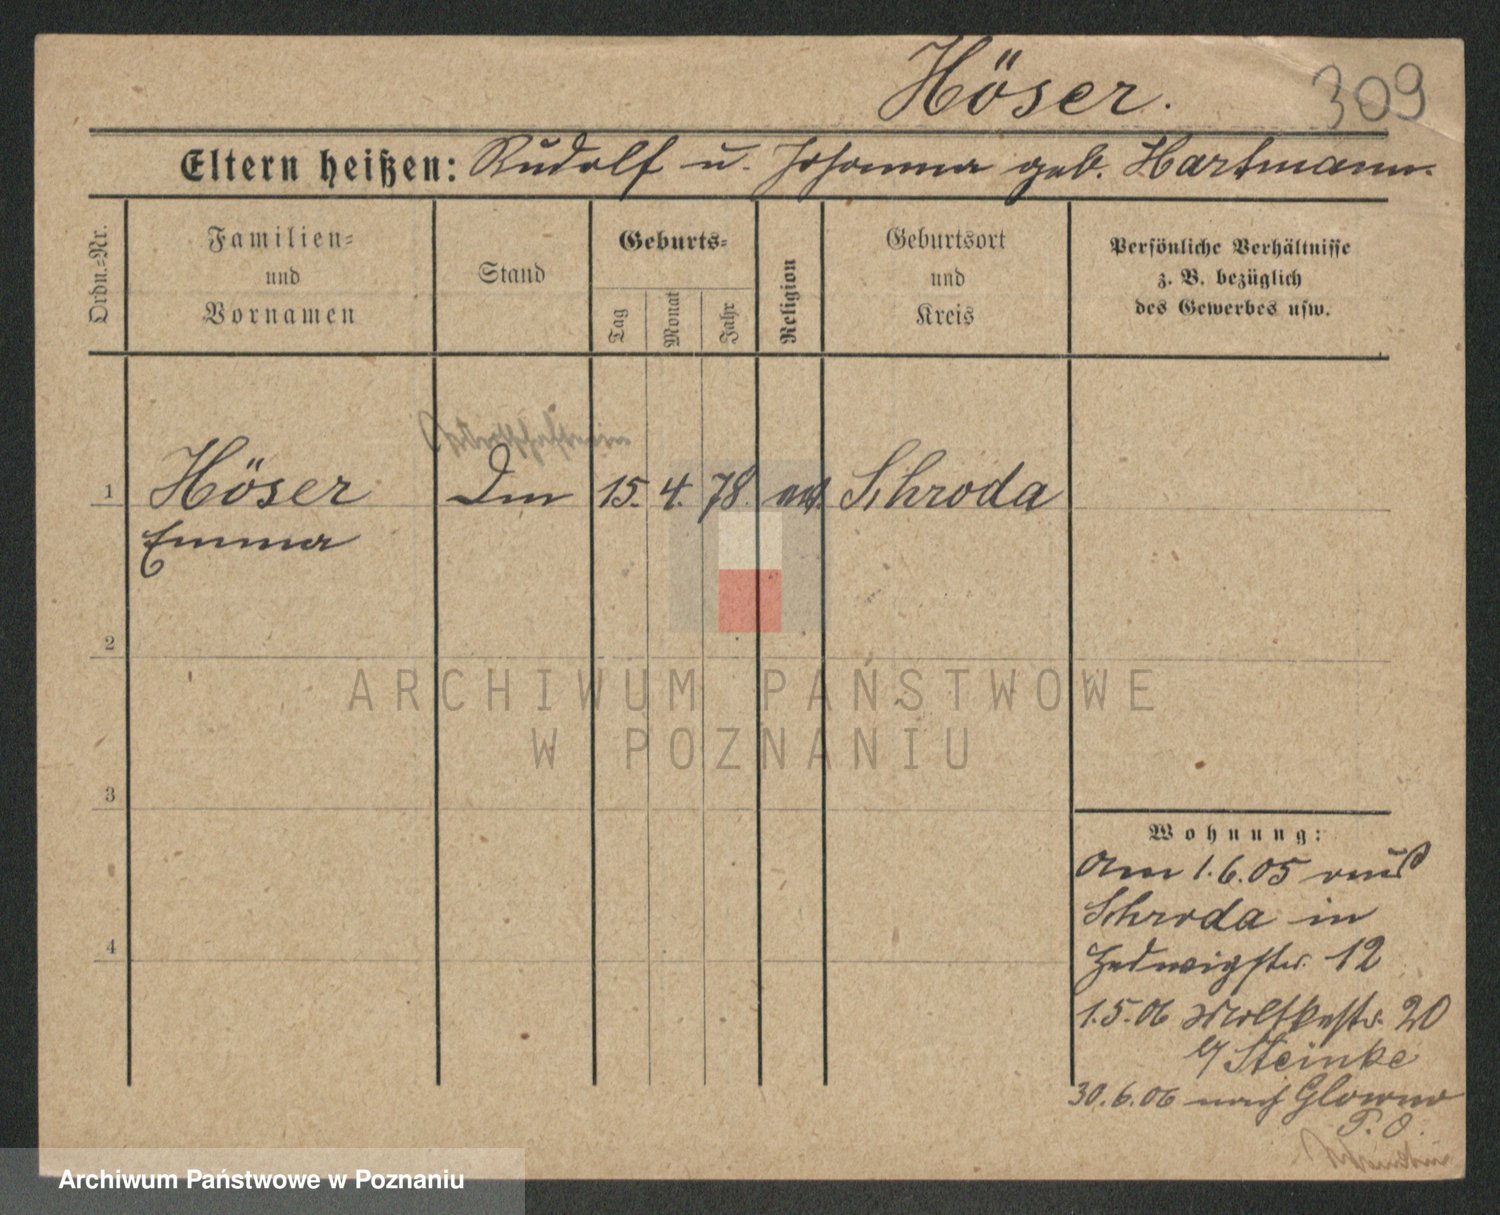 Höser.
309
Eltern heißen: Rudolf u. Johanna geb. Hartmann.
Ordn.-Nr.
Familien- und Vornamen
Stand
Geburts-
Tag
Monat
Jahr
Religion
Geburtsort und Kreis
Persönliche Verhältnisse
z. B. bezüglich
des Gewerbes usw.
1 Höser 15. 4. 78. Schroda
Emma
2
3
4
ARCHIWUM PAŃSTWOWE
W POZNANIU
Wohnung:
Am 1.6.05 aus
Schroda in
Hedwigstr. 12
1.5.06 Moltkestr. 20
b/ Steinke
30.6.06 nach Glowno
P. O.
Archiwum Państwowe w Poznaniu